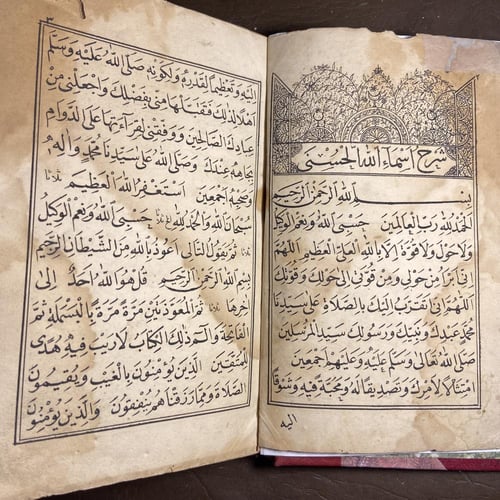 شرح أسماء الله الحسنى
بسم الله الرحمن الرحيم
الحمد لله رب العالمين حسبي الله ونعم الوكيل
ولا حول ولا قوة إلا بالله العلي العظيم اللهم
إني أبرأ من حولي ومن قوتي إلى حولك وقوتك
اللهم إني أتقرب إليك بالصلاة على سيدنا
محمد عبدك ونبيك ورسولك سيد المرسلين
صلى الله تعالى وسلم عليه وعليهم أجمعين
امتثالا لأمرك وتصديقا له ومحبة فيه وشوقا
إليه
٣
إليه وتعظيما لقدره ولكونه صلى الله عليه وسلم
أهلا لذلك فتقبلها مني بفضلك واجعلني من
عبادك الصالحين ووفقني لقراءتها على الدوام
بجاهه عندك وصلى الله على سيدنا محمد وآله
وصحبه أجمعين أستغفر الله العظيم ثلاثا
سبحان الله والحمد لله ثلاثا حسبي الله ونعم الوكيل
ثلاثا ثم يقول التالي أعوذ بالله من الشيطان الرجيم
بسم الله الرحمن الرحيم قل هو الله أحد إلى
آخرها ثم المعوذتين مرة مرة بالبسملة ثم
الفاتحة والم ذلك الكتاب لا ريب فيه هدى
للمتقين الذين يؤمنون بالغيب ويقيمون
الصلاة ومما رزقناهم ينفقون والذين يؤمنون